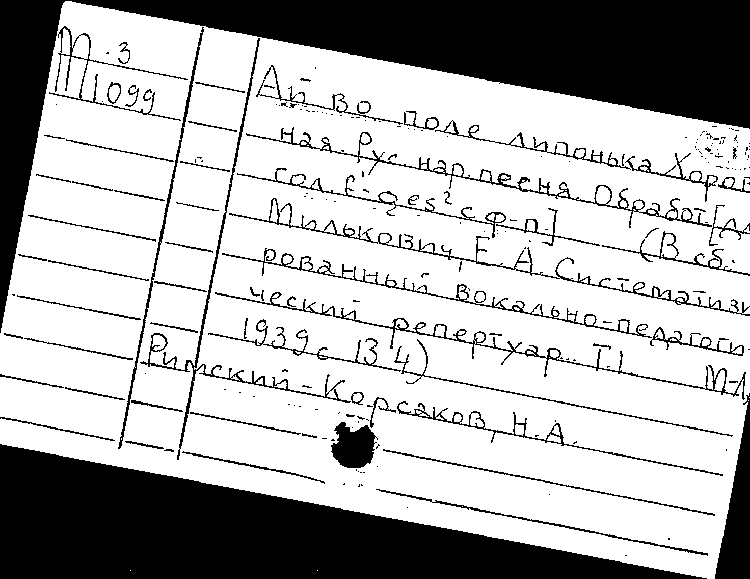 М.3
М1099
Ай во поле липонька Хоров
ная. Рус. нар. песня. Обработ. [дл
гол. f'-ges² с ф-п.] (В сб.:
Милькович, Е. А. Систематизи
рованный вокально-педагоги-
ческий репертуар. Т.I. М-Л,
1939 с 134)
Римский-Корсаков, Н.А.